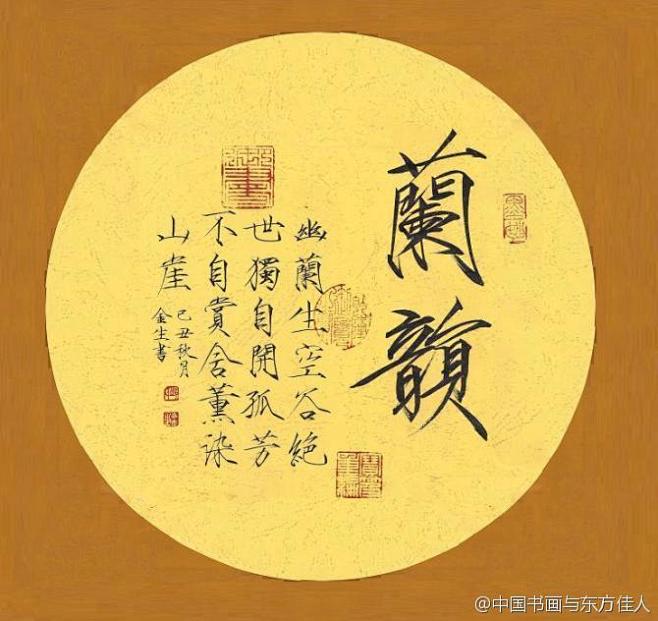 蘭韻
幽蘭生空谷絶
世獨自開孤芳
不自賞含薰染
山崖
己丑秋月
金生書
@中国书画与东方佳人